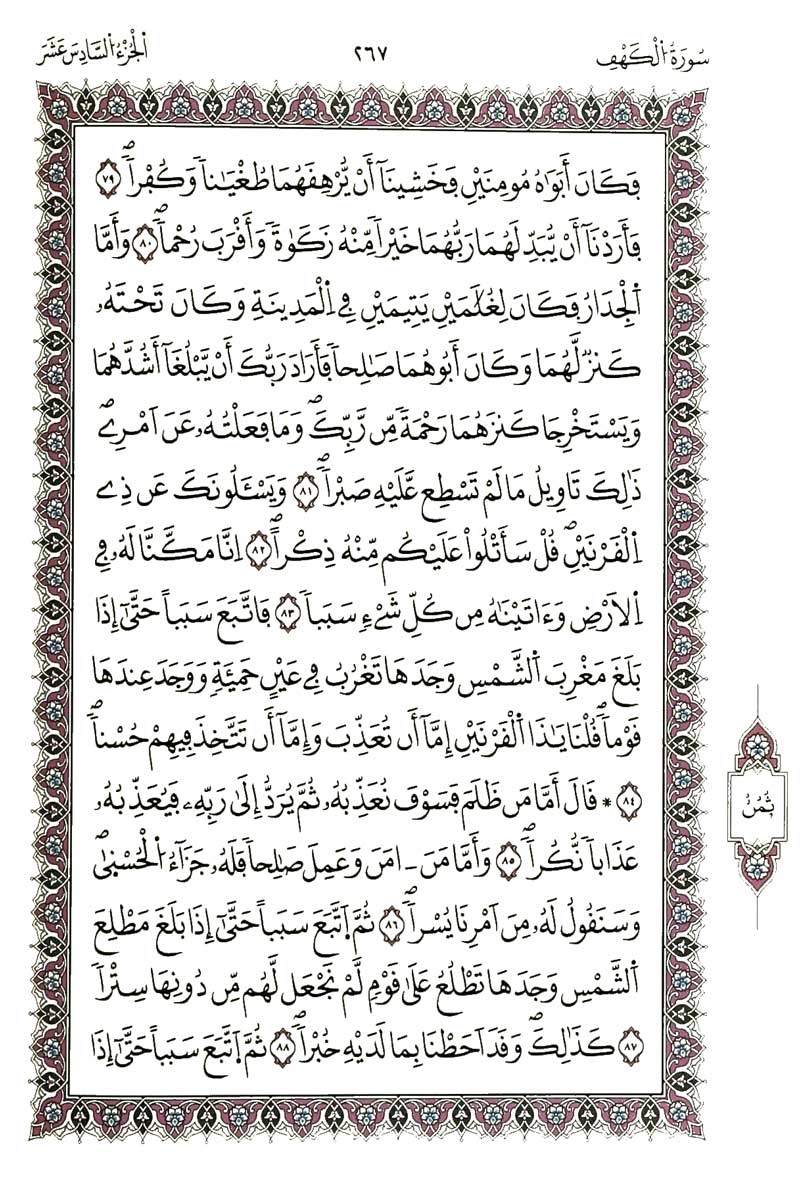 سُورَةُ الْكَهْفِ
٢٦٧
الْجُزْءُ السَّادِسَ عَشَرَ
فَكَانَ أَبَوَاهُ مُومِنَيْنِ فَخَشِينَآ أَنْ يُّرْهِقَهُمَا طُغْيَٰناً وَكُفْراًۖ ٧٩
فَأَرَدْنَآ أَنْ يُّبَدِّلَهُمَا رَبُّهُمَا خَيْراً مِّنْهُ زَكَوٰةً وَأَقْرَبَ رُحْماًۖ ٨٠ وَأَمَّا
اَ۬لْجِدَارُ فَكَانَ لِغُلَٰمَيْنِ يَتِيمَيْنِ فِے اِ۬لْمَدِينَةِ وَكَانَ تَحْتَهُۥ
كَنزٌ لَّهُمَا وَكَانَ أَبُوهُمَا صَٰلِحاً فَأَرَادَ رَبُّكَ أَنْ يَّبْلُغَآ أَشُدَّهُمَا
وَيَسْتَخْرِجَا كَنزَهُمَا رَحْمَةً مِّن رَّبِّكَۖ وَمَا فَعَلْتُهُۥ عَنَ اَمْرِےۖ
ذَٰلِكَ تَاوِيلُ مَا لَمْ تَسْطِع عَّلَيْهِ صَبْراًۖ ٨١ وَيَسْـَٔلُونَكَ عَن ذِے
اِ۬لْقَرْنَيْنِۖ قُلْ سَأَتْلُواْ عَلَيْكُم مِّنْهُ ذِكْراًۖ ٨٢ اِنَّا مَكَّنَّا لَهُۥ فِے
اِ۬لَارْضِ وَءَاتَيْنَٰهُ مِن كُلِّ شَےْءٖ سَبَباً ٨٣ فَاتَّبَعَ سَبَباً حَتَّىٰٓ إِذَا
بَلَغَ مَغْرِبَ اَ۬لشَّمْسِ وَجَدَهَا تَغْرُبُ فِے عَيْنٍ حَمِئَةٖ وَوَجَدَ عِندَهَا
قَوْماًۖ قُلْنَا يَٰذَا اَ۬لْقَرْنَيْنِ إِمَّآ أَن تُعَذِّبَ وَإِمَّآ أَن تَتَّخِذَ فِيهِمْ حُسْناًۖ
٨٤ * قَالَ أَمَّا مَن ظَلَمَ فَسَوْفَ نُعَذِّبُهُۥ ثُمَّ يُرَدُّ إِلَىٰ رَبِّهِۦ فَيُعَذِّبُهُۥ
عَذَاباً نُّكُراًۖ ٨٥ وَأَمَّا مَنَ ـ امَنَ وَعَمِلَ صَٰلِحاً فَلَهُۥ جَزَآءُ اُ۬لْحُسْنَىٰۖ
وَسَنَقُولُ لَهُۥ مِنَ اَمْرِنَا يُسْراًۖ ٨٦ ثُمَّ اَ۪تَّبَعَ سَبَباً حَتَّىٰٓ إِذَا بَلَغَ مَطْلِعَ
اَ۬لشَّمْسِ وَجَدَهَا تَطْلُعُ عَلَىٰ قَوْمٖ لَّمْ نَجْعَل لَّهُم مِّن دُونِهَا سِتْراً
٨٧ كَذَٰلِكَۖ وَقَدَ اَحَطْنَا بِمَا لَدَيْهِ خُبْراًۖ ٨٨ ثُمَّ اَ۪تَّبَعَ سَبَباً حَتَّىٰٓ إِذَا
ثُمُنُ